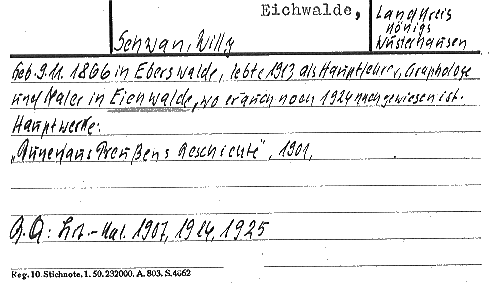 Eichwalde,
Landkreis
Königs
Wusterhausen
Schwan, Willy
Geb. 9.11. 1866 in Eberswalde, lebte 1913 als Hauptlehrer, Graphologe
und Maler in Eichwalde, wo er auch noch 1924 nachgewiesen ist.
Hauptwerke:
"Runen aus Preußens Geschichte", 1901,
Lit.-Kal. 1907, 1914, 1925
Reg. 10. Stichnote. 1. 50. 232000. A. 803. S. 4662